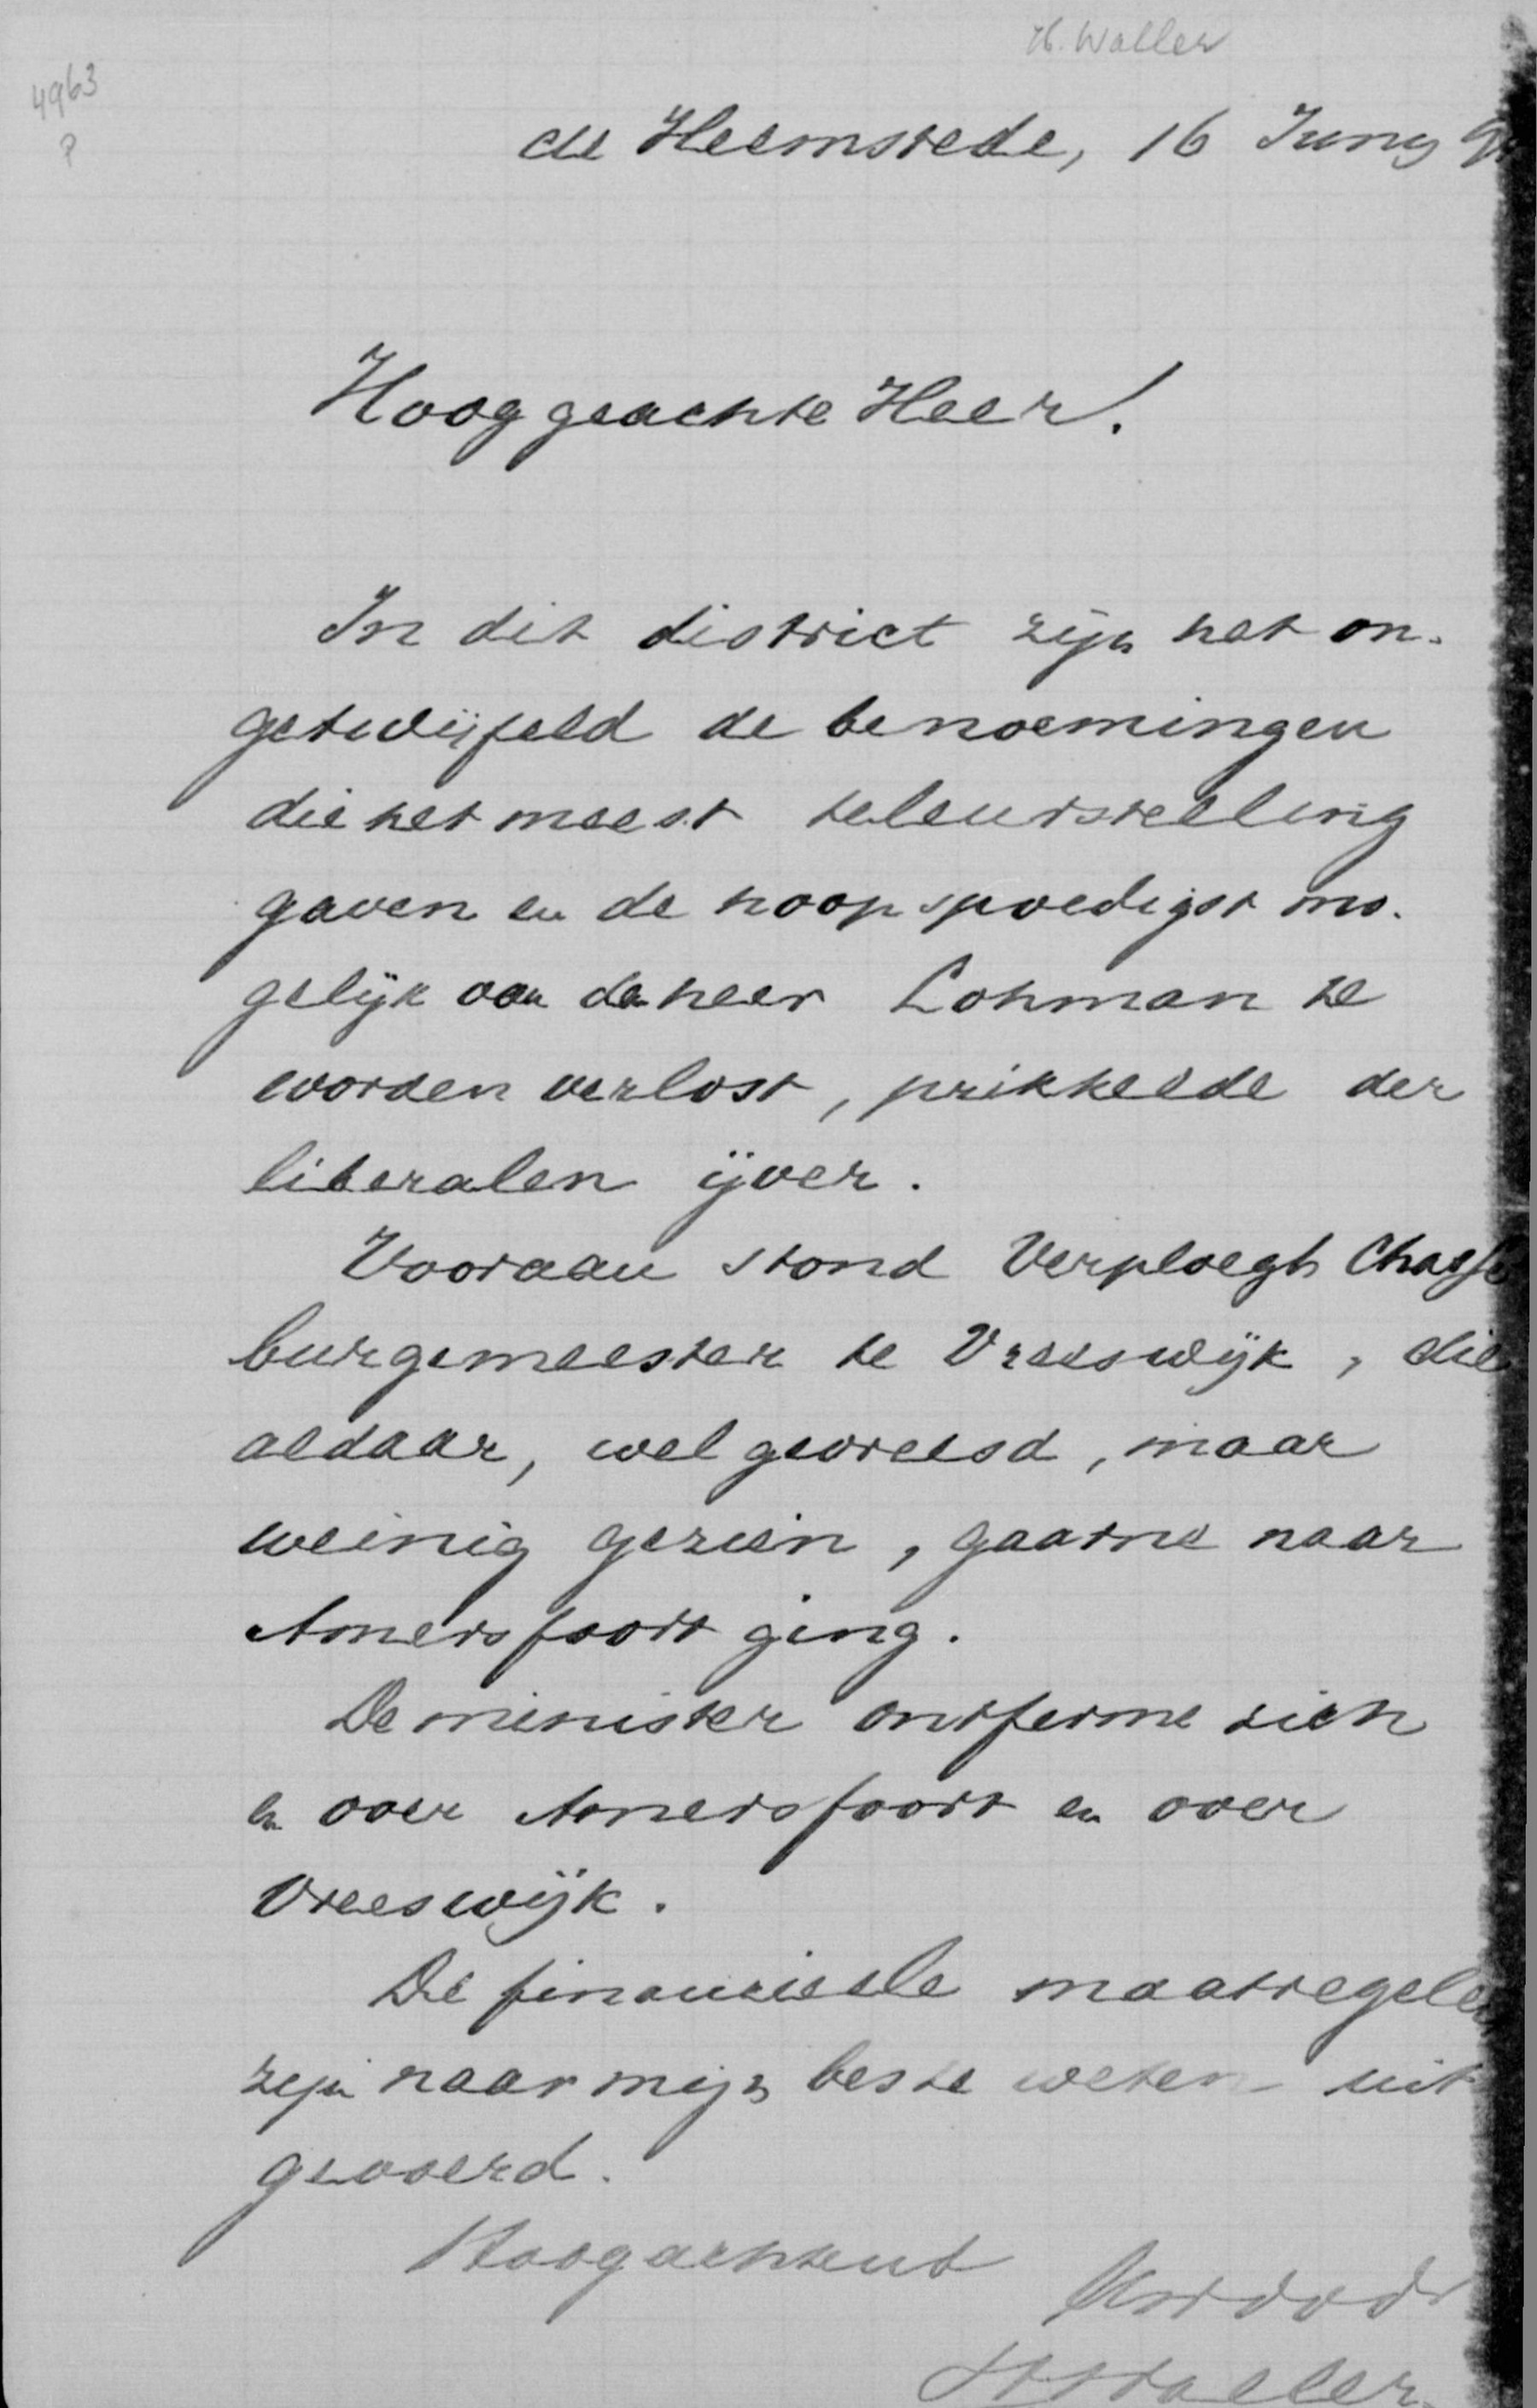 H. Waller
4963
P
de Heemstede, 16 Juny
Hooggeachte Heer!
In dit district zijn het on-
getwijfeld de benoemingen
die het meest teleurstelling
gaven en de hoop spoedigst mo-
gelijk van den heer Lohman te
worden verlost, prikkelde der
liberalen ijver.
Vooraan stond Verploegh Chassé
burgemeester te Vreeswijk, die
aldaar, wel gevreesd, maar
weinig gezien, gaarne naar
Amersfoort ging.
De minister ontferme zich
en over Amersfoort en over
Vreeswijk.
De financieele maatregelen
zijn naar mijn beste weten uit
gevoerd.
Hoogachtend
HWaller